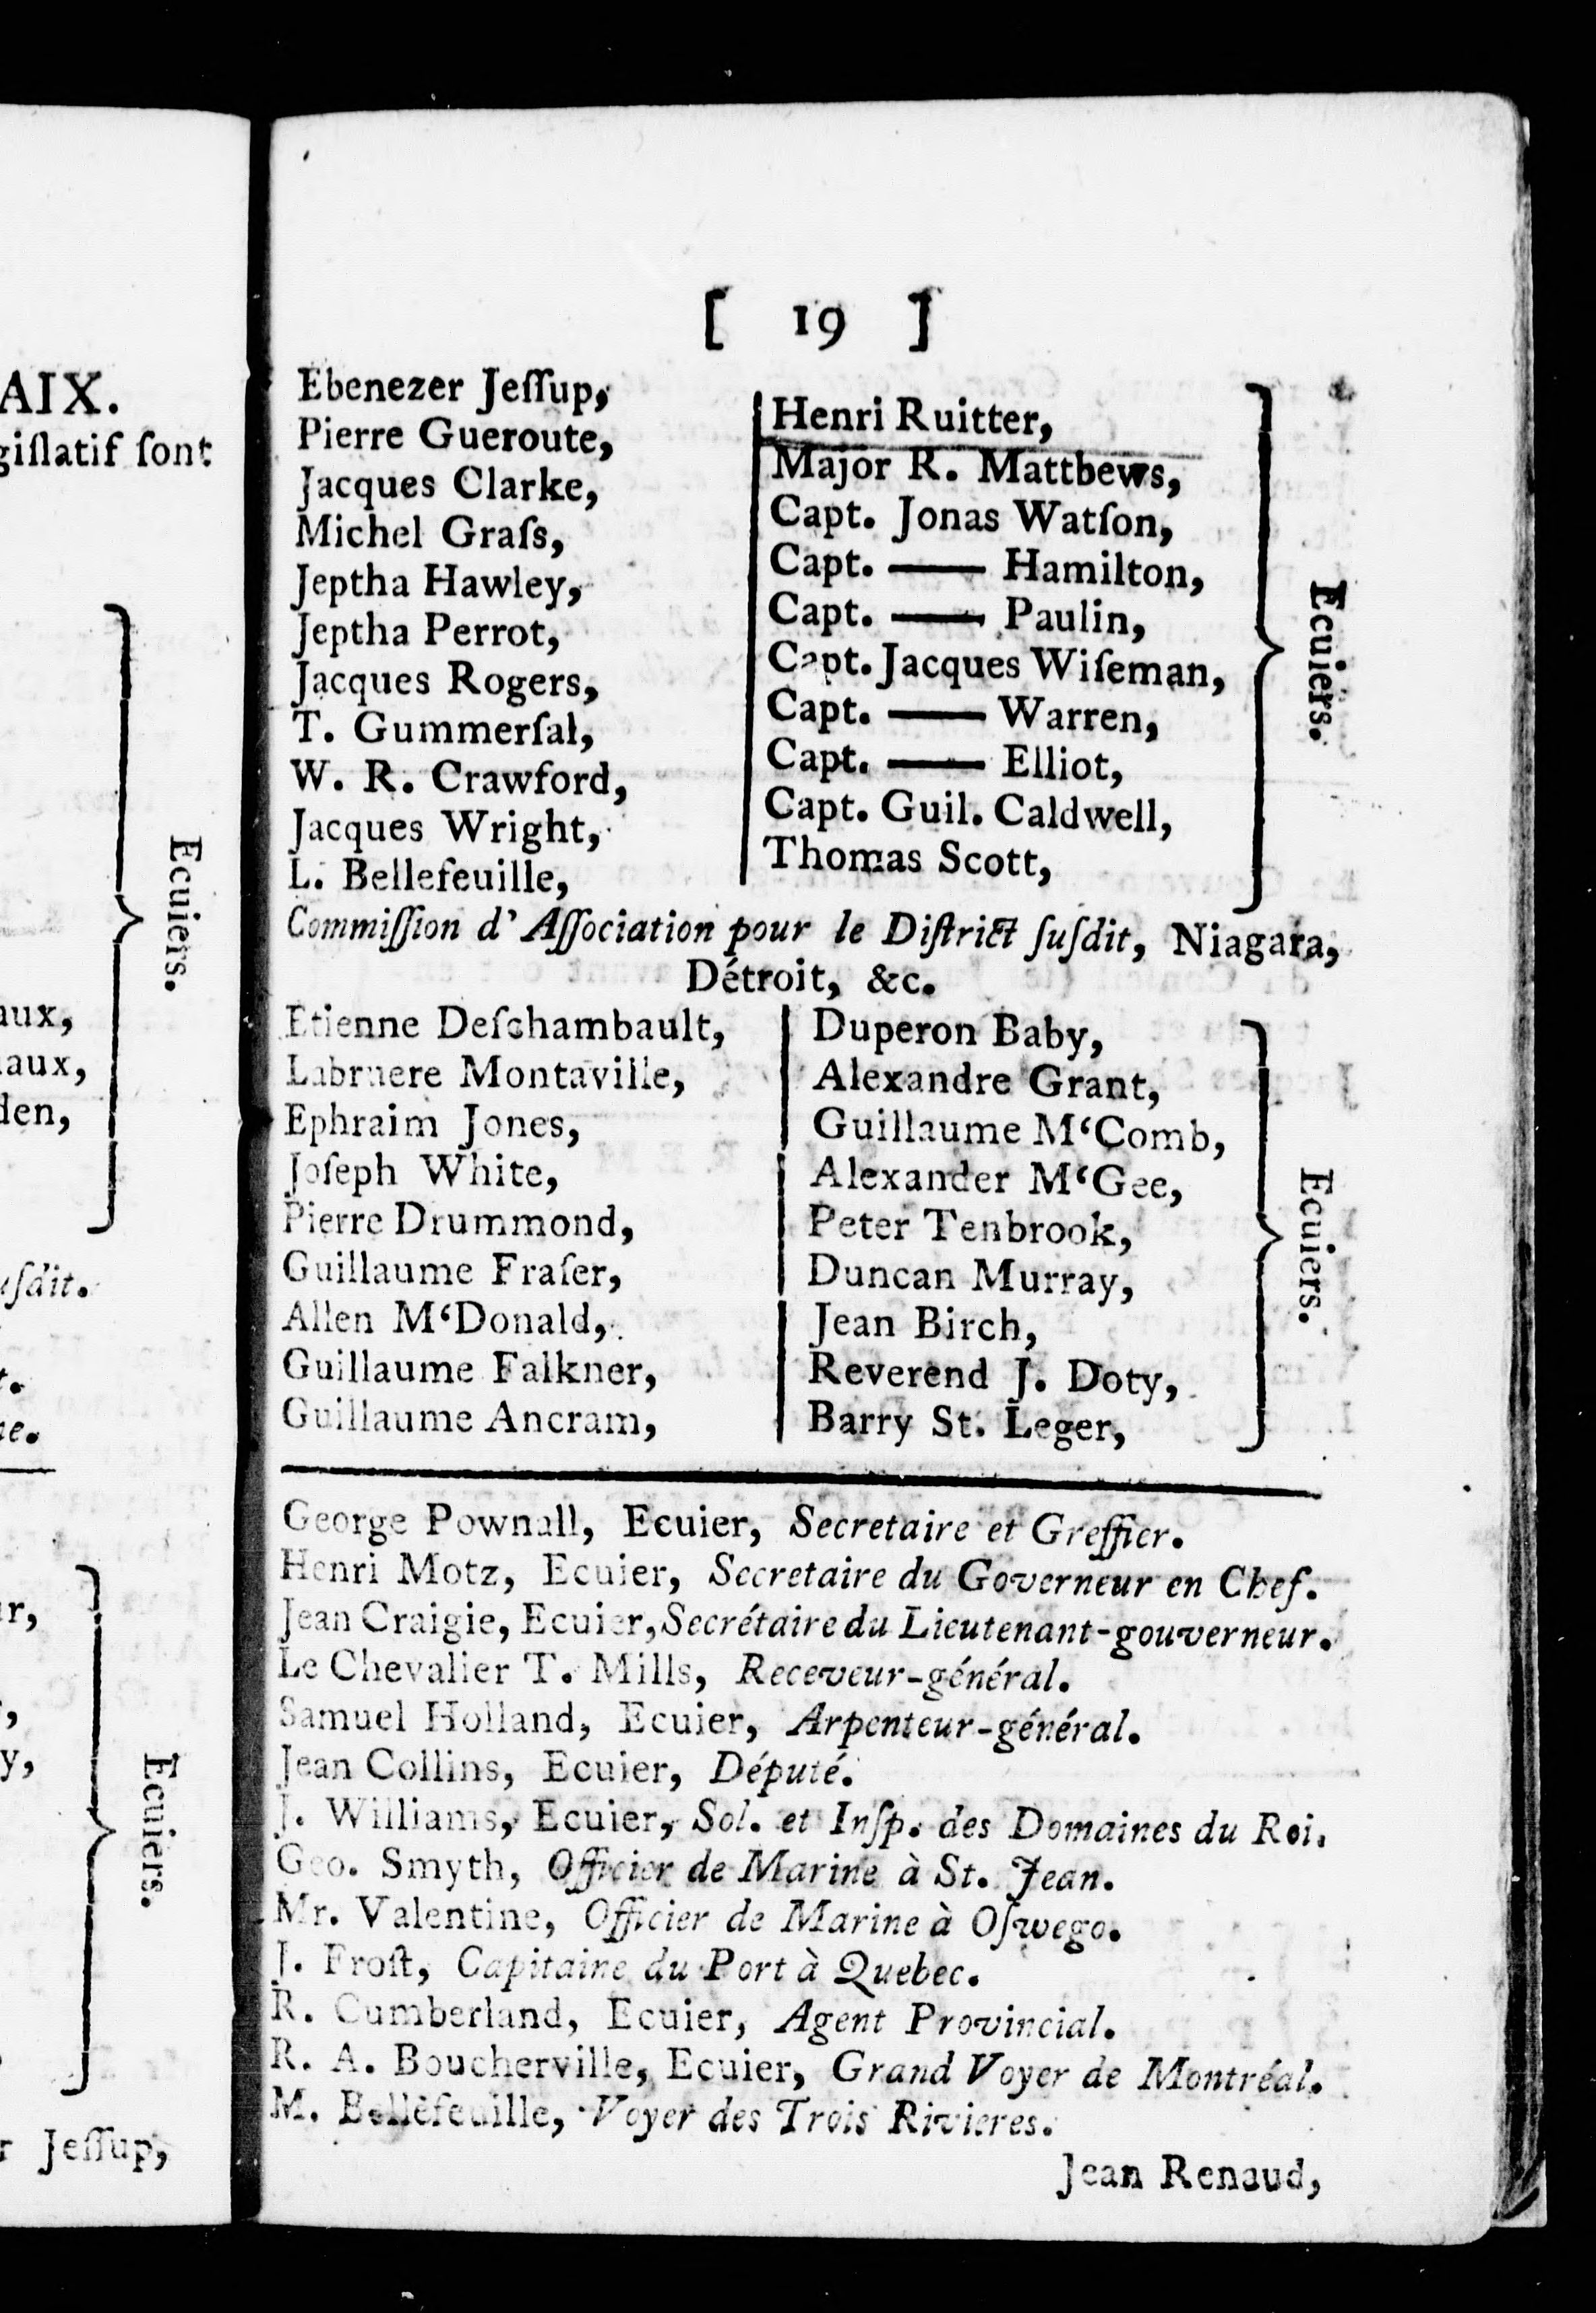 AIX.
giſlatif ſont
Ecuiers.
aux,
aux,
den,
ſdit.
Ecuiers.
Jeſſup,
[ 19 ]
Ebenezer Jeſſup,
Pierre Gueroute,
Jacques Clarke,
Michel Graſs,
Jeptha Hawley,
Jeptha Perrot,
Jacques Rogers,
T. Gummerſal,
W. R. Crawford,
Jacques Wright,
L. Bellefeuille,
Henri Ruitter,
Major R. Matthews,
Capt. Jonas Watſon,
Capt. —— Hamilton,
Capt. —— Paulin,
Capt. Jacques Wiſeman,
Capt. —— Warren,
Capt. —— Elliot,
Capt. Guil. Caldwell,
Thomas Scott,
Ecuiers.
Commiſſion d' Aſſociation pour le Diſtrict ſuſdit, Niagara,
Détroit, &c.
Etienne Deſchambault,
Labruere Montaville,
Ephraim Jones,
Joſeph White,
Pierre Drummond,
Guillaume Fraſer,
Allen M‘Donald,
Guillaume Falkner,
Guillaume Ancram,
Duperon Baby,
Alexandre Grant,
Guillaume M‘Comb,
Alexander M‘Gee,
Peter Tenbrook,
Duncan Murray,
Jean Birch,
Reverend J. Doty,
Barry St. Leger,
Ecuiers.
George Pownall, Ecuier, Secretaire et Greffier.
Henri Motz, Ecuier, Secretaire du Governeur en Chef.
Jean Craigie, Ecuier, Secrétaire du Lieutenant-gouverneur.
Le Chevalier T. Mills, Receveur-général.
Samuel Holland, Ecuier, Arpenteur-général.
Jean Collins, Ecuier, Député.
J. Williams, Ecuier, Sol. et Inſp. des Domaines du Roi.
Geo. Smyth, Officier de Marine à St. Jean.
Mr. Valentine, Officier de Marine à Oſwego.
J. Froſt, Capitaine du Port à Quebec.
R. Cumberland, Ecuier, Agent Provincial.
R. A. Boucherville, Ecuier, Grand Voyer de Montréal.
M. Bellefeuille, Voyer des Trois Rivieres.
Jean Renaud,